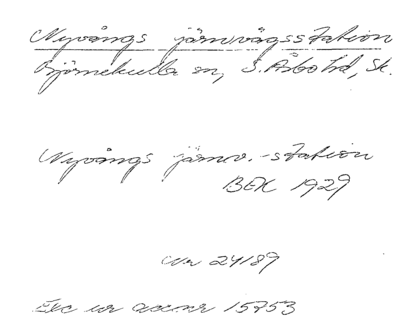 Nyvångs järnvägsstation
Björnekulla sn, S. Åsbo hd, Sk.
Nyvångs järnv.-station
BEK 1929
Nr 24189
Exc ur acc.nr 15753